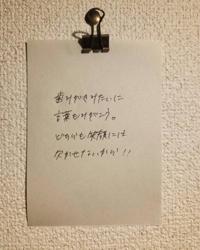 歯みがきみたいに
言葉もみがこう。
どちらも笑顔には
欠かせないから!!